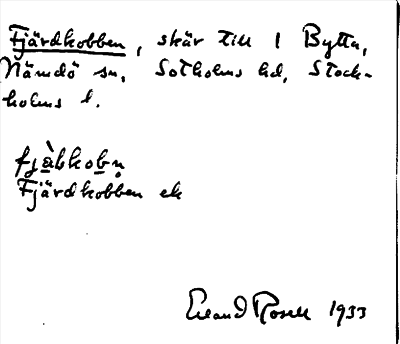 Fjärdkobben, skär till 1 Bytta,
Nämdö sn, Sotholms hd, Stock-
holms l.
fjàbkobn̥
Fjärdkobben ek
Erland Rosell 1933